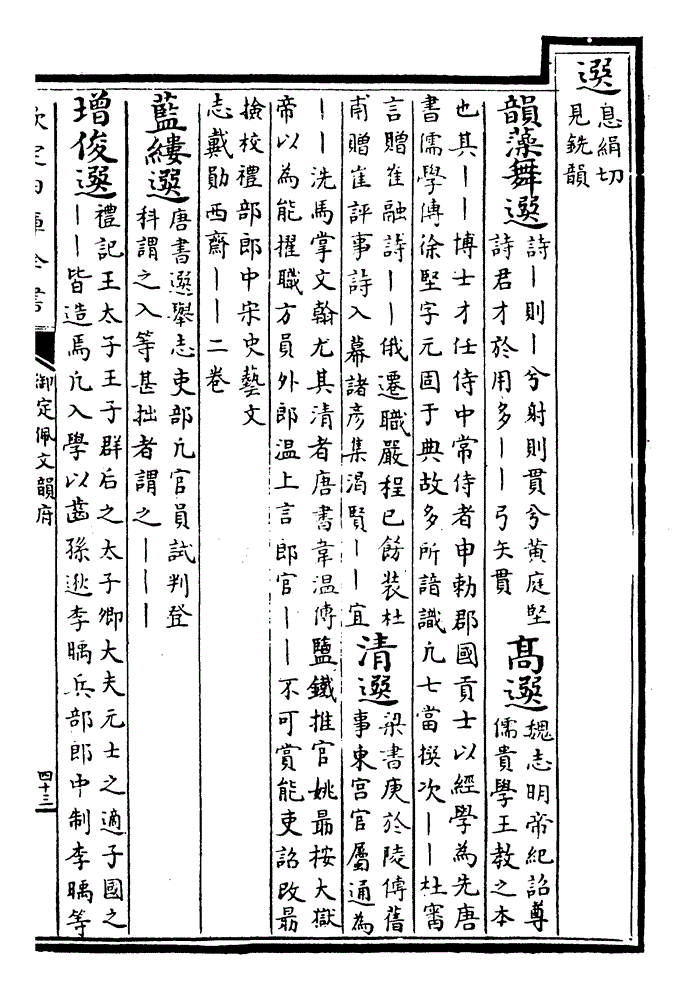 選息絹切
見銑韻
韻藻舞選詩｜則｜兮射則貫兮黃庭堅
詩君才於用多｜｜弓矢貫
高選魏志明帝紀詔尊
儒貴學王教之本
也其｜｜博士才任侍中常侍者申勅郡國貢士以經學為先唐
書儒學傅徐堅字元固于典故多所諳識凡七當撰次｜｜杜審
言贈崔融詩｜｜俄遷職嚴程已飭裝杜
甫贈崔評事詩入幕諸彥集渴賢｜｜宜
清選梁書庾於陵傳舊
事東宮官屬通為
｜｜洗馬掌文翰尤其清者唐書韋温傅鹽鐵推官姚勗按大獄
帝以為能擢職方員外郎温上言郎官｜｜不可賞能吏詔改勗
撿校禮部郎中宋史藝文
志戴勛西齋｜｜二卷
藍縷選唐書選舉志吏部凡官員試判登
科謂之入等甚拙者謂之｜｜｜
增俊選禮記王太子王子群后之太子卿大夫元士之適子國之
｜｜皆造焉凡入學以齒孫逖李暠兵部郎中制李暠等
欽定四庫全書
御定佩文韻府
四十三